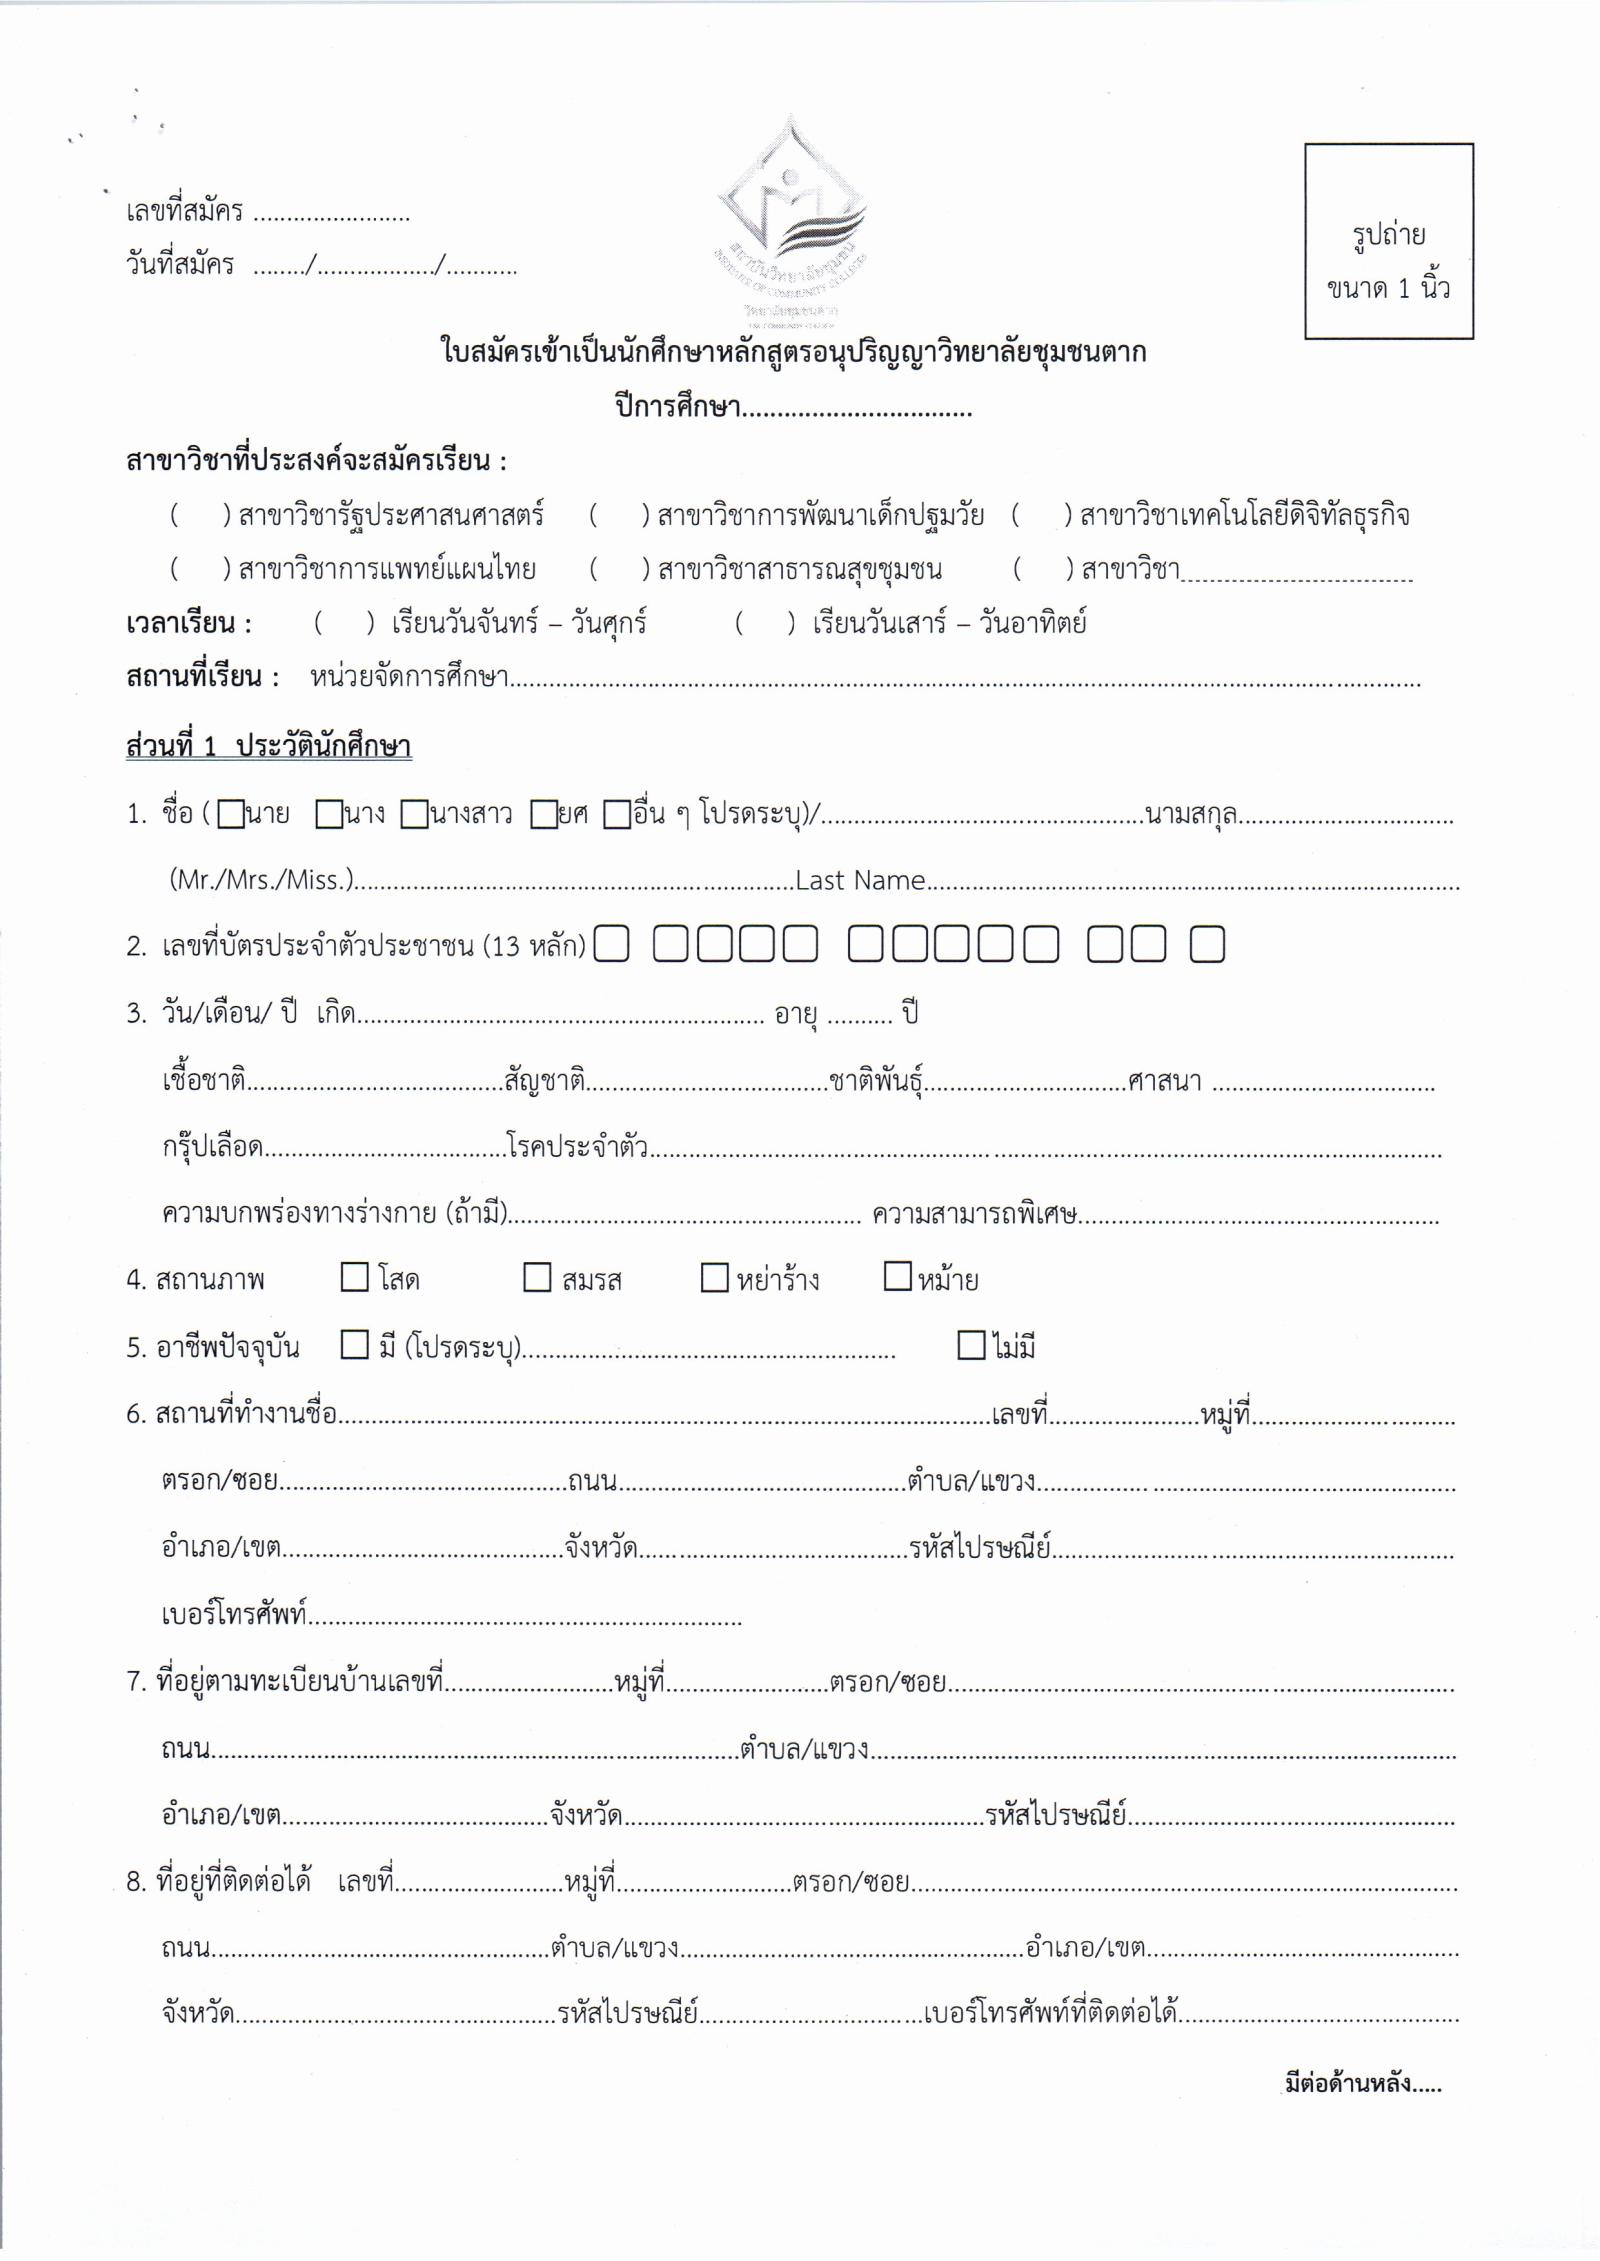 เลขที่สมัคร ........................
วันที่สมัคร ......../................../...........
สถาบันวิทยาลัยชุมชน
INSTITUTE OF COMMUNITY COLLEGES
วิทยาลัยชุมชนตาก
TAK COMMUNITY COLLEGE
รูปถ่าย
ขนาด 1 นิ้ว
ใบสมัครเข้าเป็นนักศึกษาหลักสูตรอนุปริญญาวิทยาลัยชุมชนตาก
ปีการศึกษา.................................
สาขาวิชาที่ประสงค์จะสมัครเรียน :
( ) สาขาวิชารัฐประศาสนศาสตร์ ( ) สาขาวิชาการพัฒนาเด็กปฐมวัย ( ) สาขาวิชาเทคโนโลยีดิจิทัลธุรกิจ
( ) สาขาวิชาการแพทย์แผนไทย ( ) สาขาวิชาสาธารณสุขชุมชน ( ) สาขาวิชา..............................
เวลาเรียน : ( ) เรียนวันจันทร์ – วันศุกร์ ( ) เรียนวันเสาร์ – วันอาทิตย์
สถานที่เรียน : หน่วยจัดการศึกษา....................................................................................
ส่วนที่ 1 ประวัตินักศึกษา
1. ชื่อ ( □นาย □นาง □นางสาว □ยศ □อื่น ๆ โปรดระบุ)/................................................นามสกุล................................
(Mr./Mrs./Miss.)..................................................................Last Name................................................................................
2. เลขที่บัตรประจำตัวประชาชน (13 หลัก) □ □□□□ □□□□□ □□ □
3. วัน/เดือน/ ปี เกิด.............................................................. อายุ .......... ปี
เชื้อชาติ.......................................สัญชาติ.....................................ชาติพันธุ์...............................ศาสนา ..................................
กรุ๊ปเลือด.....................................โรคประจำตัว........................................................................................
ความบกพร่องทางร่างกาย (ถ้ามี)..................................................... ความสามารถพิเศษ.......................................................
4. สถานภาพ □ โสด □ สมรส □ หย่าร้าง □ หม้าย
5. อาชีพปัจจุบัน □ มี (โปรดระบุ)......................................................... □ ไม่มี
6. สถานที่ทำงานชื่อ...................................................................................................เลขที่.......................หมู่ที่...............................
ตรอก/ซอย............................................ถนน............................................ตำบล/แขวง................................................................
อำเภอ/เขต...........................................จังหวัด.........................................รหัสไปรษณีย์.............................................................
เบอร์โทรศัพท์..................................................................
7. ที่อยู่ตามทะเบียนบ้านเลขที่..........................หมู่ที่.........................ตรอก/ซอย.............................................................................
ถนน................................................................................ตำบล/แขวง.........................................................................................
อำเภอ/เขต.........................................จังหวัด.......................................................รหัสไปรษณีย์..................................................
8. ที่อยู่ที่ติดต่อได้ เลขที่..........................หมู่ที่...........................ตรอก/ซอย...................................................................................
ถนน....................................................ตำบล/แขวง....................................................อำเภอ/เขต................................................
จังหวัด.................................................รหัสไปรษณีย์..................................เบอร์โทรศัพท์ที่ติดต่อได้...........................................
มีต่อด้านหลัง.....